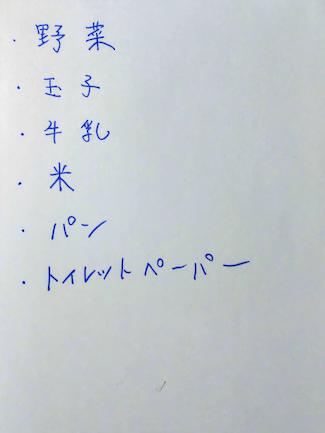 ・野菜
・玉子
・牛乳
・米
・パン
・トイレットペーパー